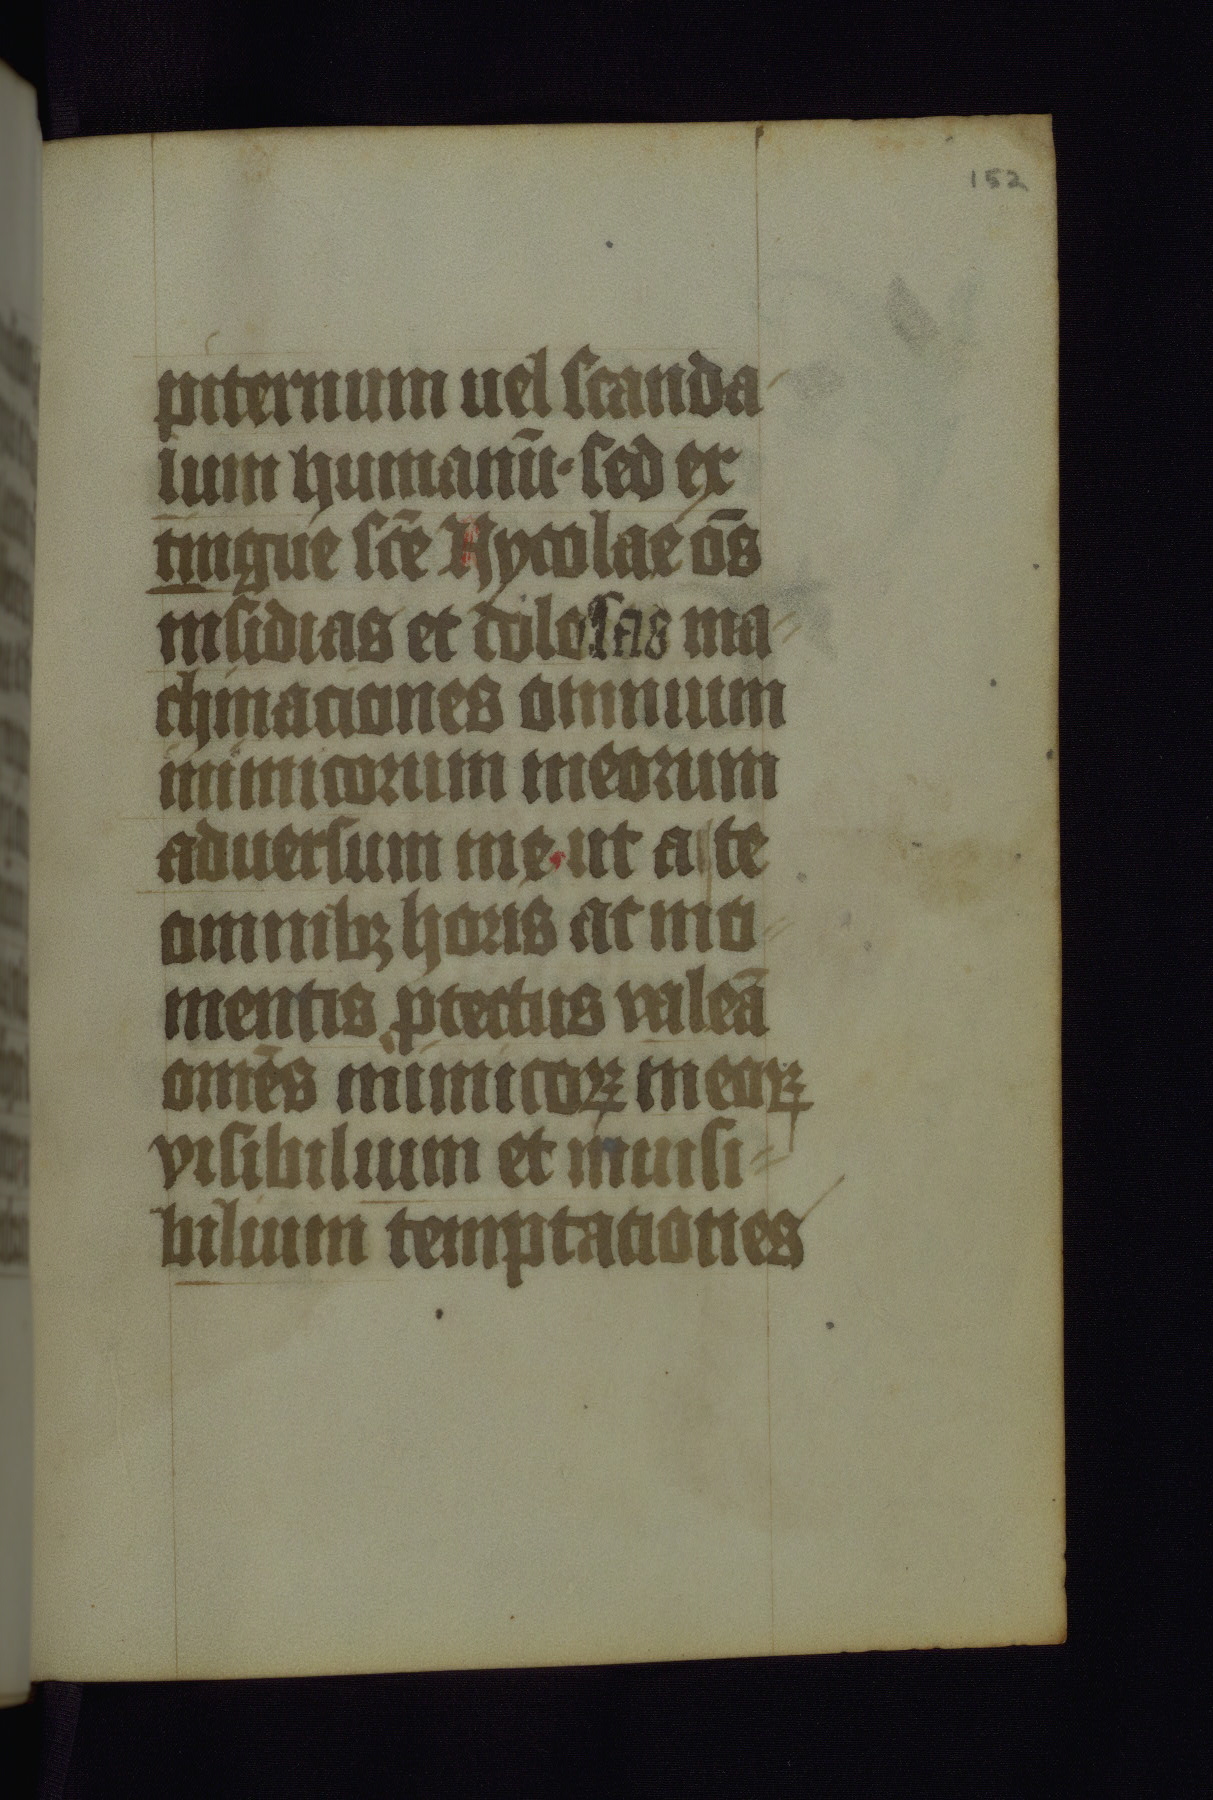 152
piternum uel scanda-
lum humanū· sed ex
tingue sc̄e Nycolae om̄s
insidias et dolosas ma=
chinationes omnium
inimicorum meorum
aduersum me· ut a te
omnibꝫ horis ac mo=
mentis ꝓtectus valeā
omēs inimicoꝝ meoꝝ
visibilium et inuisi=
bilium temptationes